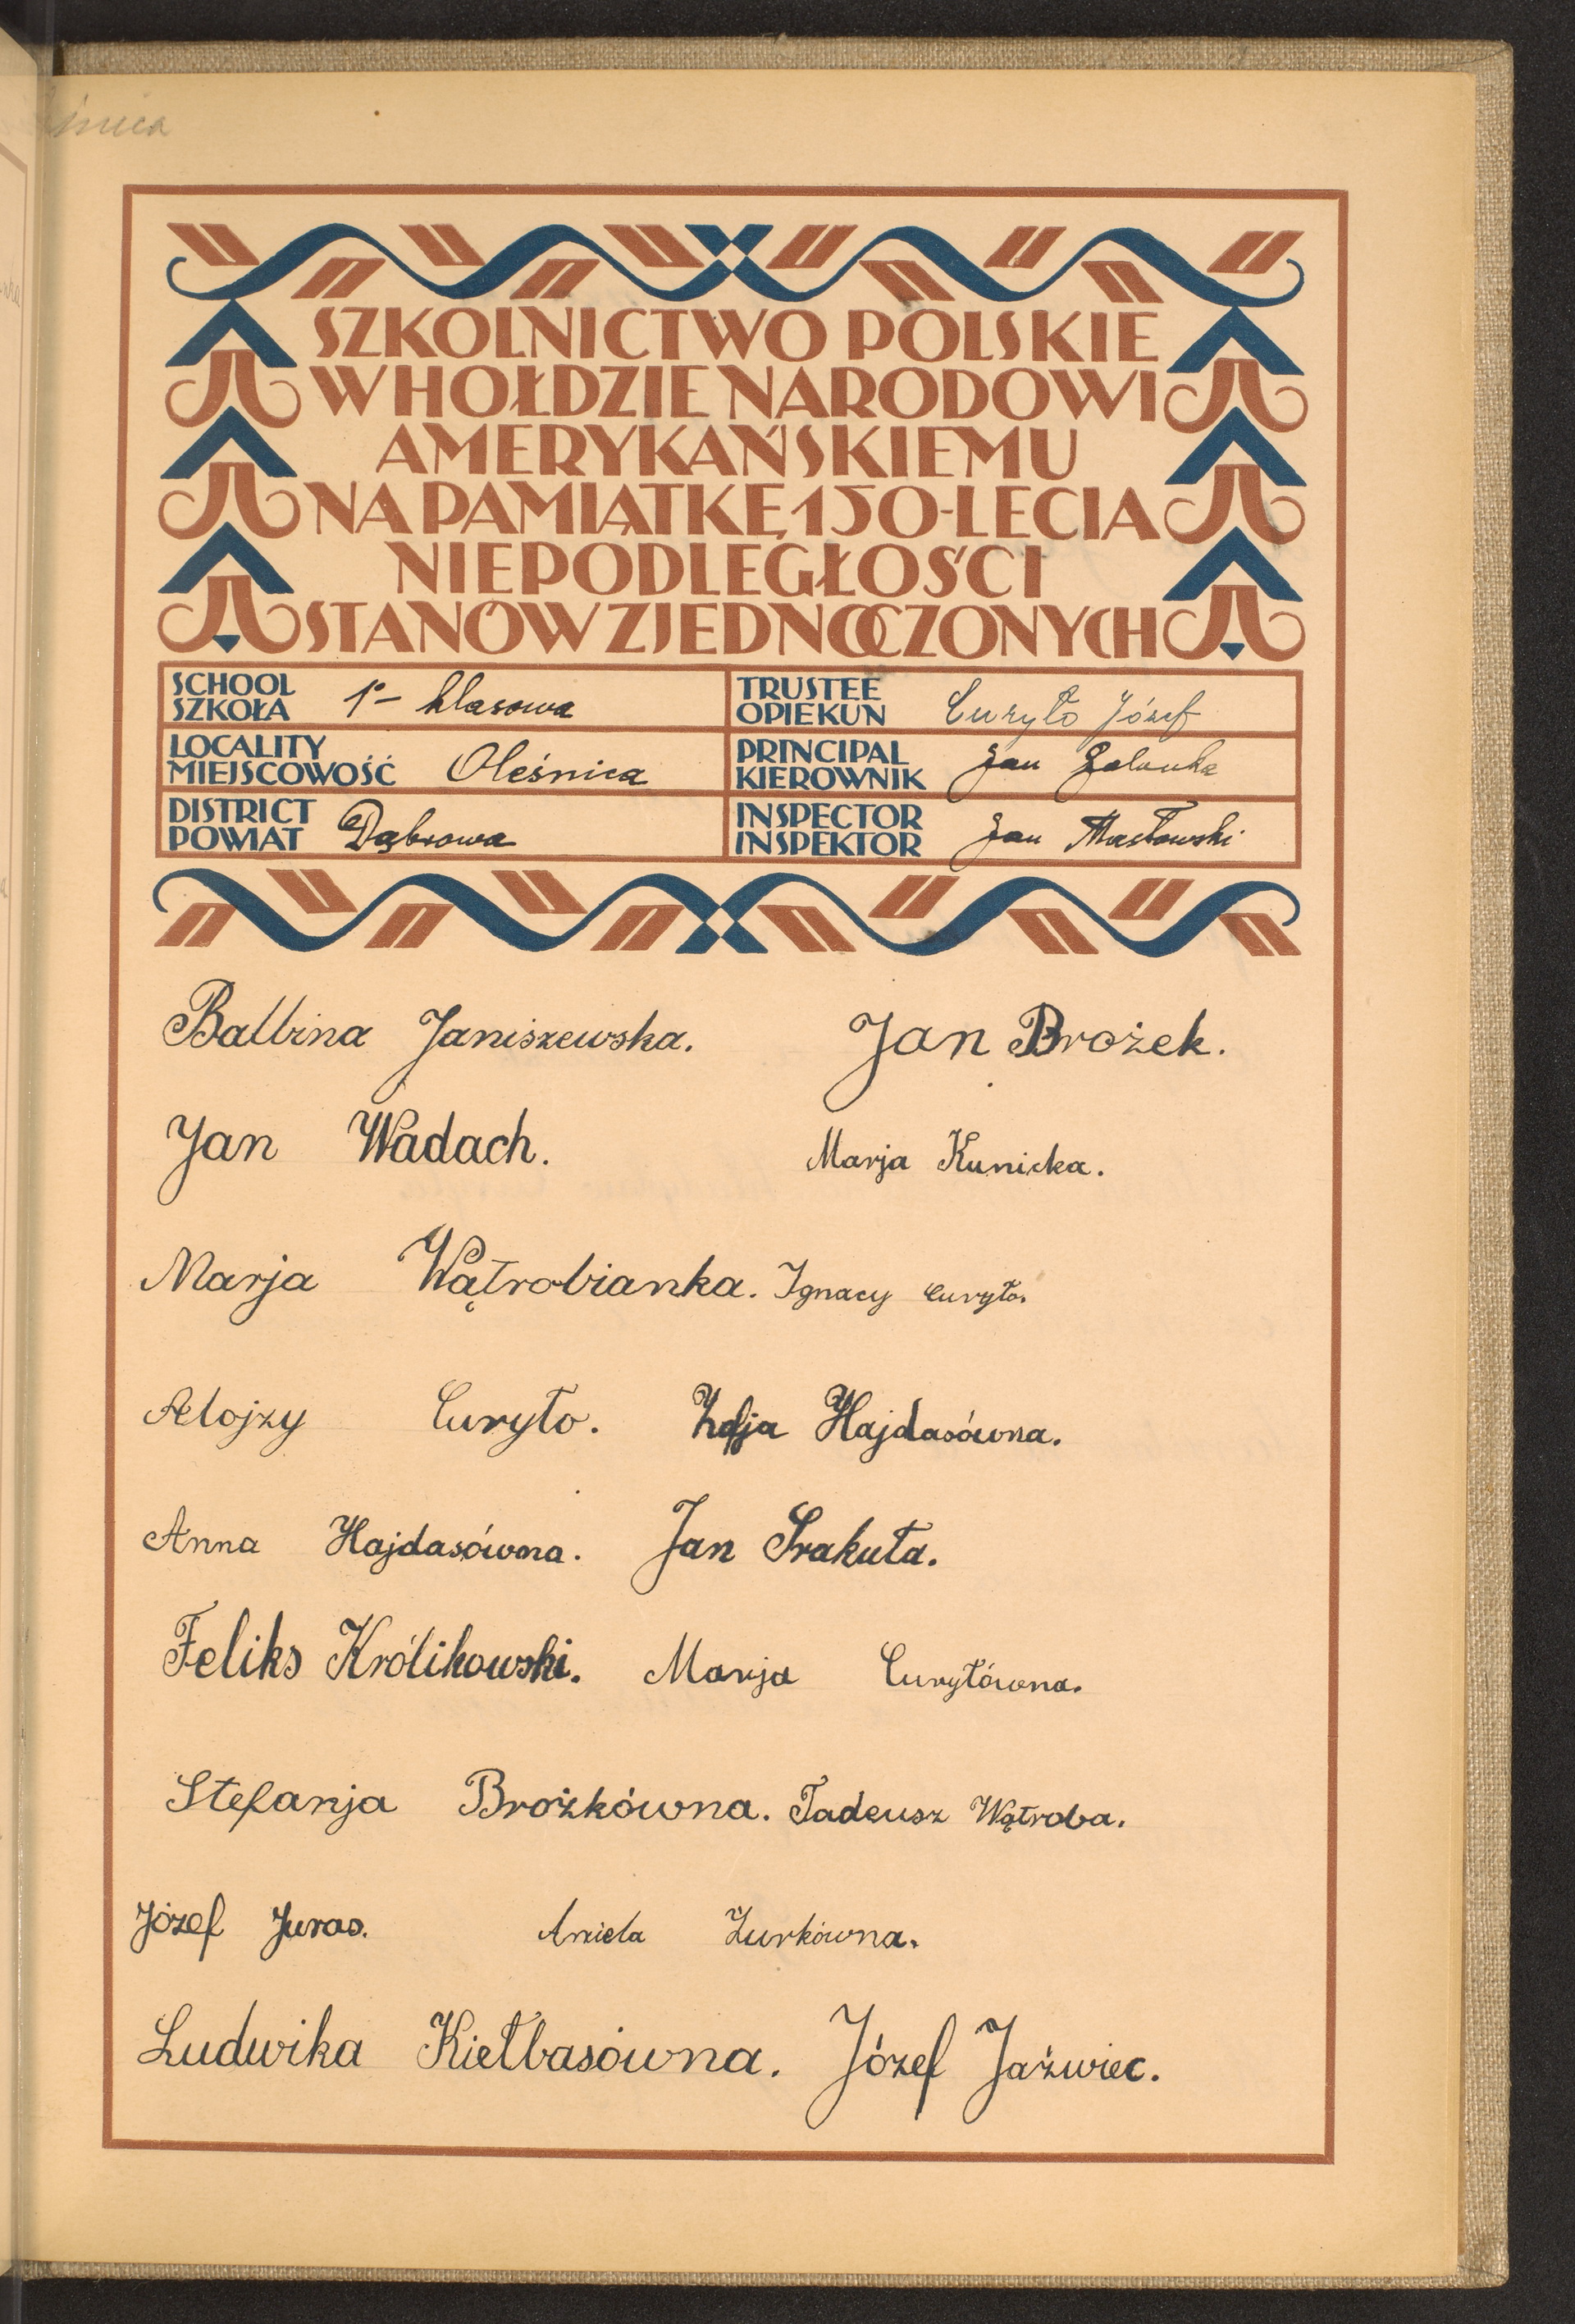 śnica
SZKOLNICTWO POLSKIE
W HOŁDZIE NARODOWI
AMERYKAŃSKIEMU
NA PAMIĄTKĘ 150-LECIA
NIEPODLEGŁOŚCI
STANÓW ZJEDNOCZONYCH
SCHOOL
SZKOŁA 1o- klasowa
TRUSTEE
OPIEKUN Curyło Józef
LOCALITY
MIEJSCOWOŚĆ Oleśnica
PRINCIPAL
KIEROWNIK Jan
DISTRICT
POWIAT Dąbrowa
INSPECTOR
INSPEKTOR Jan Masłowski
Balbina Janiszewska. Jan Brożek.
Jan Wadach. Marja Kunicka.
Marja Wątrobianka. Ignacy Curyło.
Alojzy Curyło. Zofja Hajdasówna.
Anna Hajdasówna. Jan Srakuła.
Feliks Królikowski. Marja Curyłówna.
Stefanja Brożkówna. Tadeusz Wątroba.
Józef Juras. Aniela Żurkówna.
Ludwika Kiełbasówna. Józef Jaźwiec.